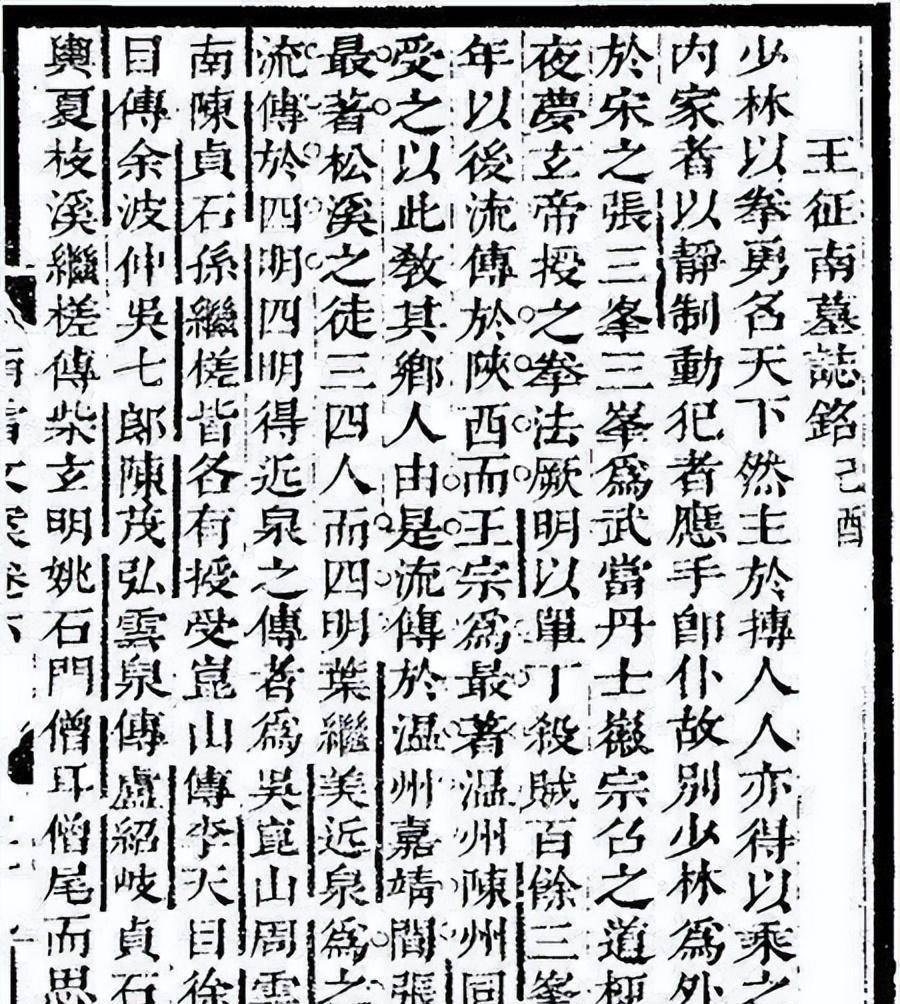 王征南墓誌銘己酉
少林以拳勇名天下然主於搏人人亦得以乘之
内家者以靜制動犯者應手卽仆故別少林爲外
於宋之張三峯三峯爲武當丹士徽宗召之道梗
夜夢玄帝授之拳法厥明以單丁殺賊百餘三峯
年以後流傳於陜西而王宗爲最著溫州陳州同
受之以此敎其鄉人由是流傳於溫州嘉靖間張
最著松溪之徒三四人而四明葉繼美近泉爲之
流傳於四明四明得近泉之傳者爲吳崑山周雲
南陳貞石孫繼槎皆各有授受崑山傳李天目徐
目傳余波仲吳七郎陳茂弘雲泉傳盧紹岐貞石
輿夏枝溪繼槎傳柴玄明姚石門僧耳僧尾而思
南雷文案卷六